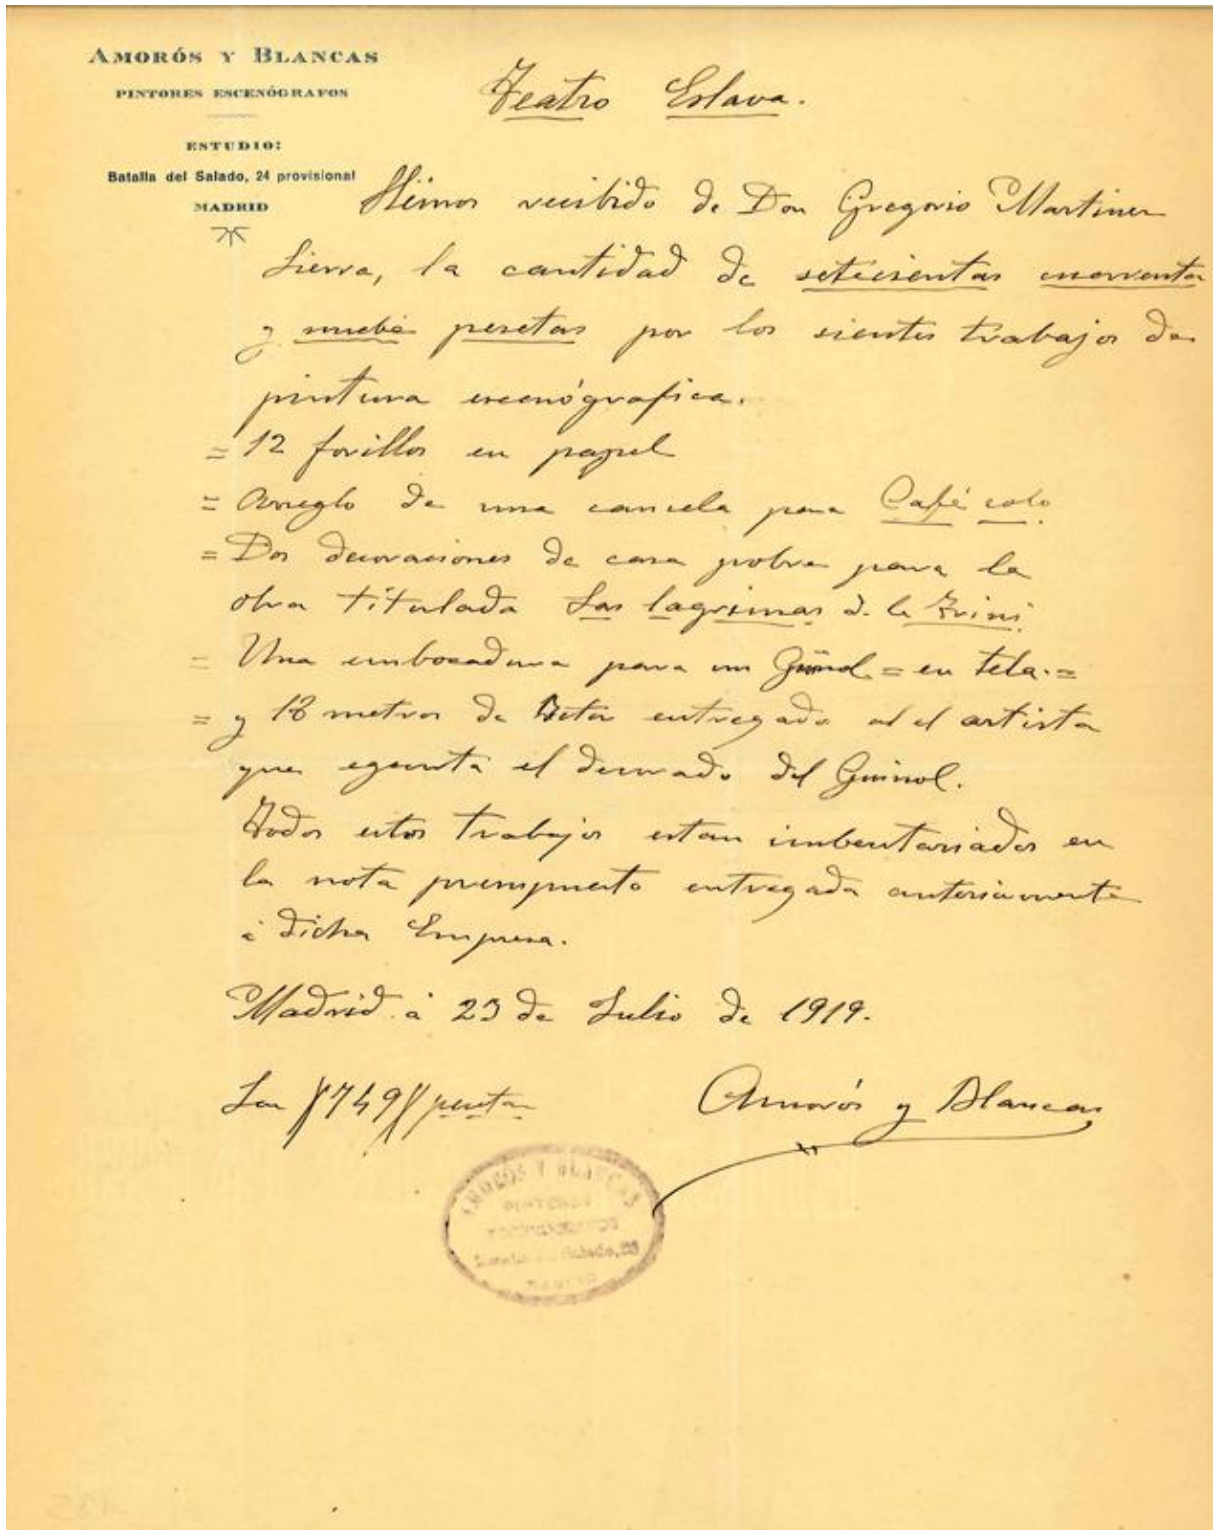 AMORÓS Y BLANCAS
PINTORES ESCENÓGRAFOS
ESTUDIO:
Batalla del Salado, 24 provisional
MADRID
Teatro Eslava.
Hémos recibido de Don Gregorio Martinez
Sierra, la cantidad de setecientas cuarenta
y nuebe pesetas por los sientes trabajos de
pintura escenógrafica.
= 12 forillos en papel
= Arreglo de una cancela para Café solo
= Dos decoraciones de casa pobre para la
obra titulada Las lagrimas d. la Trini
= Una embocadura para un Guiñol = en tela. =
= y 18 metros de entregado al el artista
que egecuta el decorado del Guinol.
Todos estos trabajos estan imbentariados en
la nota presupuesto entregada anteriormente
á dicha Empresa.
Madrid á 23 de Julio de 1919.
Son //749// pesetas
Amorós y Blancas
AMORÓS Y BLANCAS
PINTORES
ESCENÓGRAFOS
Salado,
MADRID